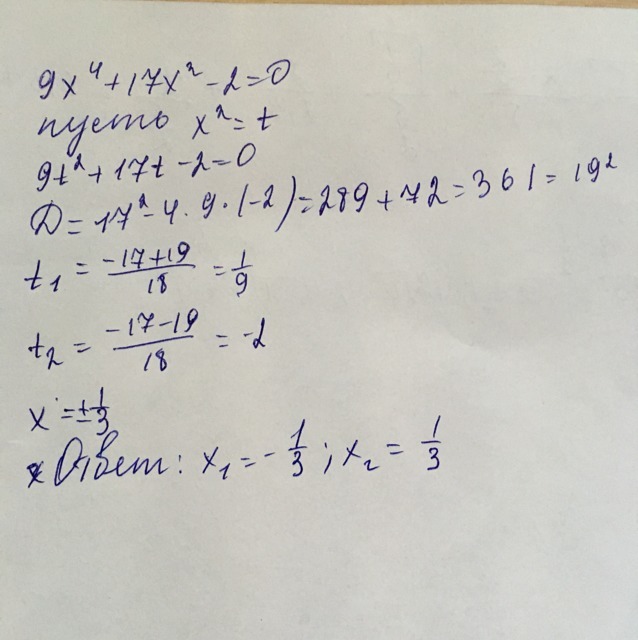 9x⁴+17x²-2=0
пусть x²=t
9t²+17t-2=0
D=17²-4·9·(-2)=289+72=361=19²
t₁ = \frac{-17+19}{18} = \frac{1}{9}
t₂ = \frac{-17-19}{18} = -2
x = ±\frac{1}{3}
Ответ: x₁ = -\frac{1}{3}; x₂ = \frac{1}{3}